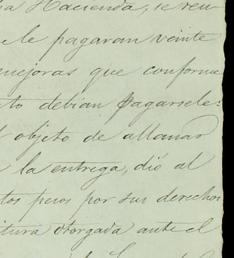 a Hacienda, se reu
le pagaran veinte
mejoras que conforme
to debian pagarsele:
l objeto de allanar
la entrega, dió al
tos pesos por sus derechos
itura otorgada ante el